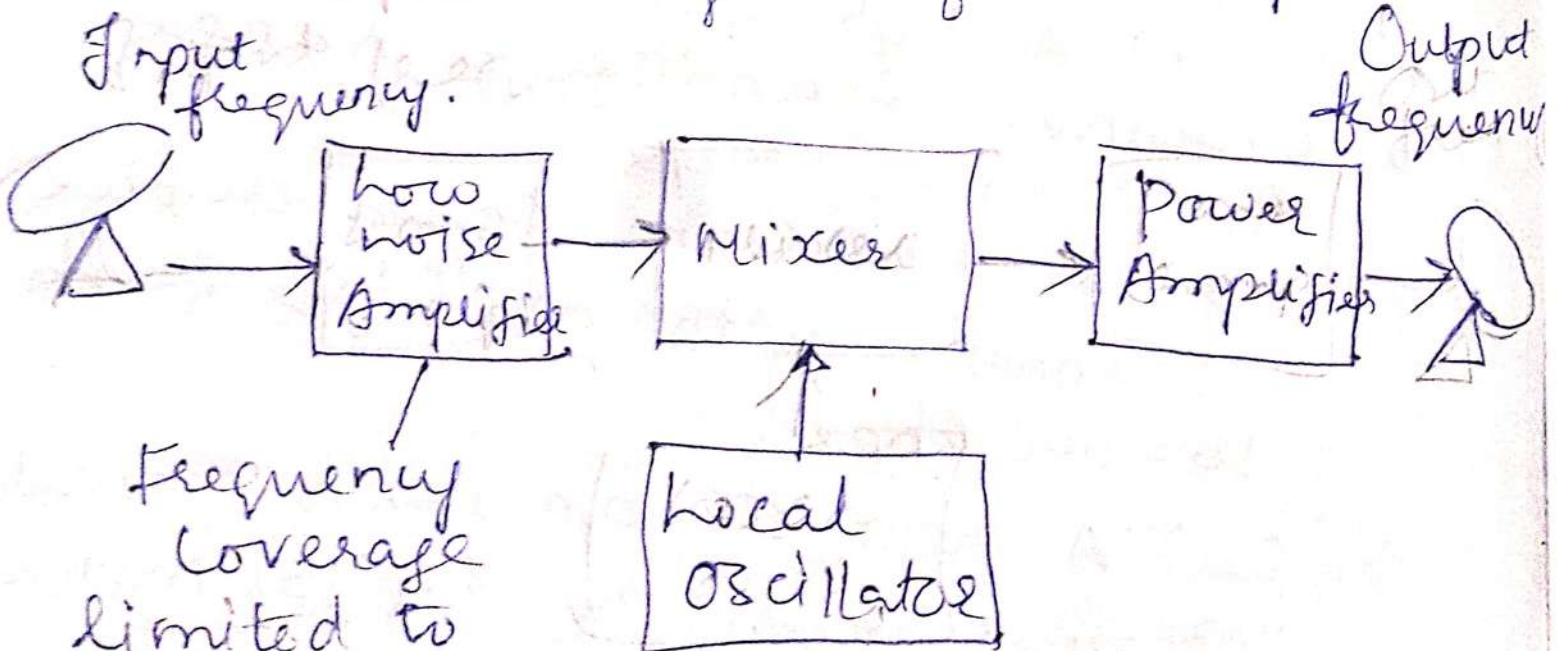 Input
frequency.
Output
Low
noise
Amplifier
Mixer
Power
Amplifier
Frequency
Coverage
limited to
Local
Oscillator